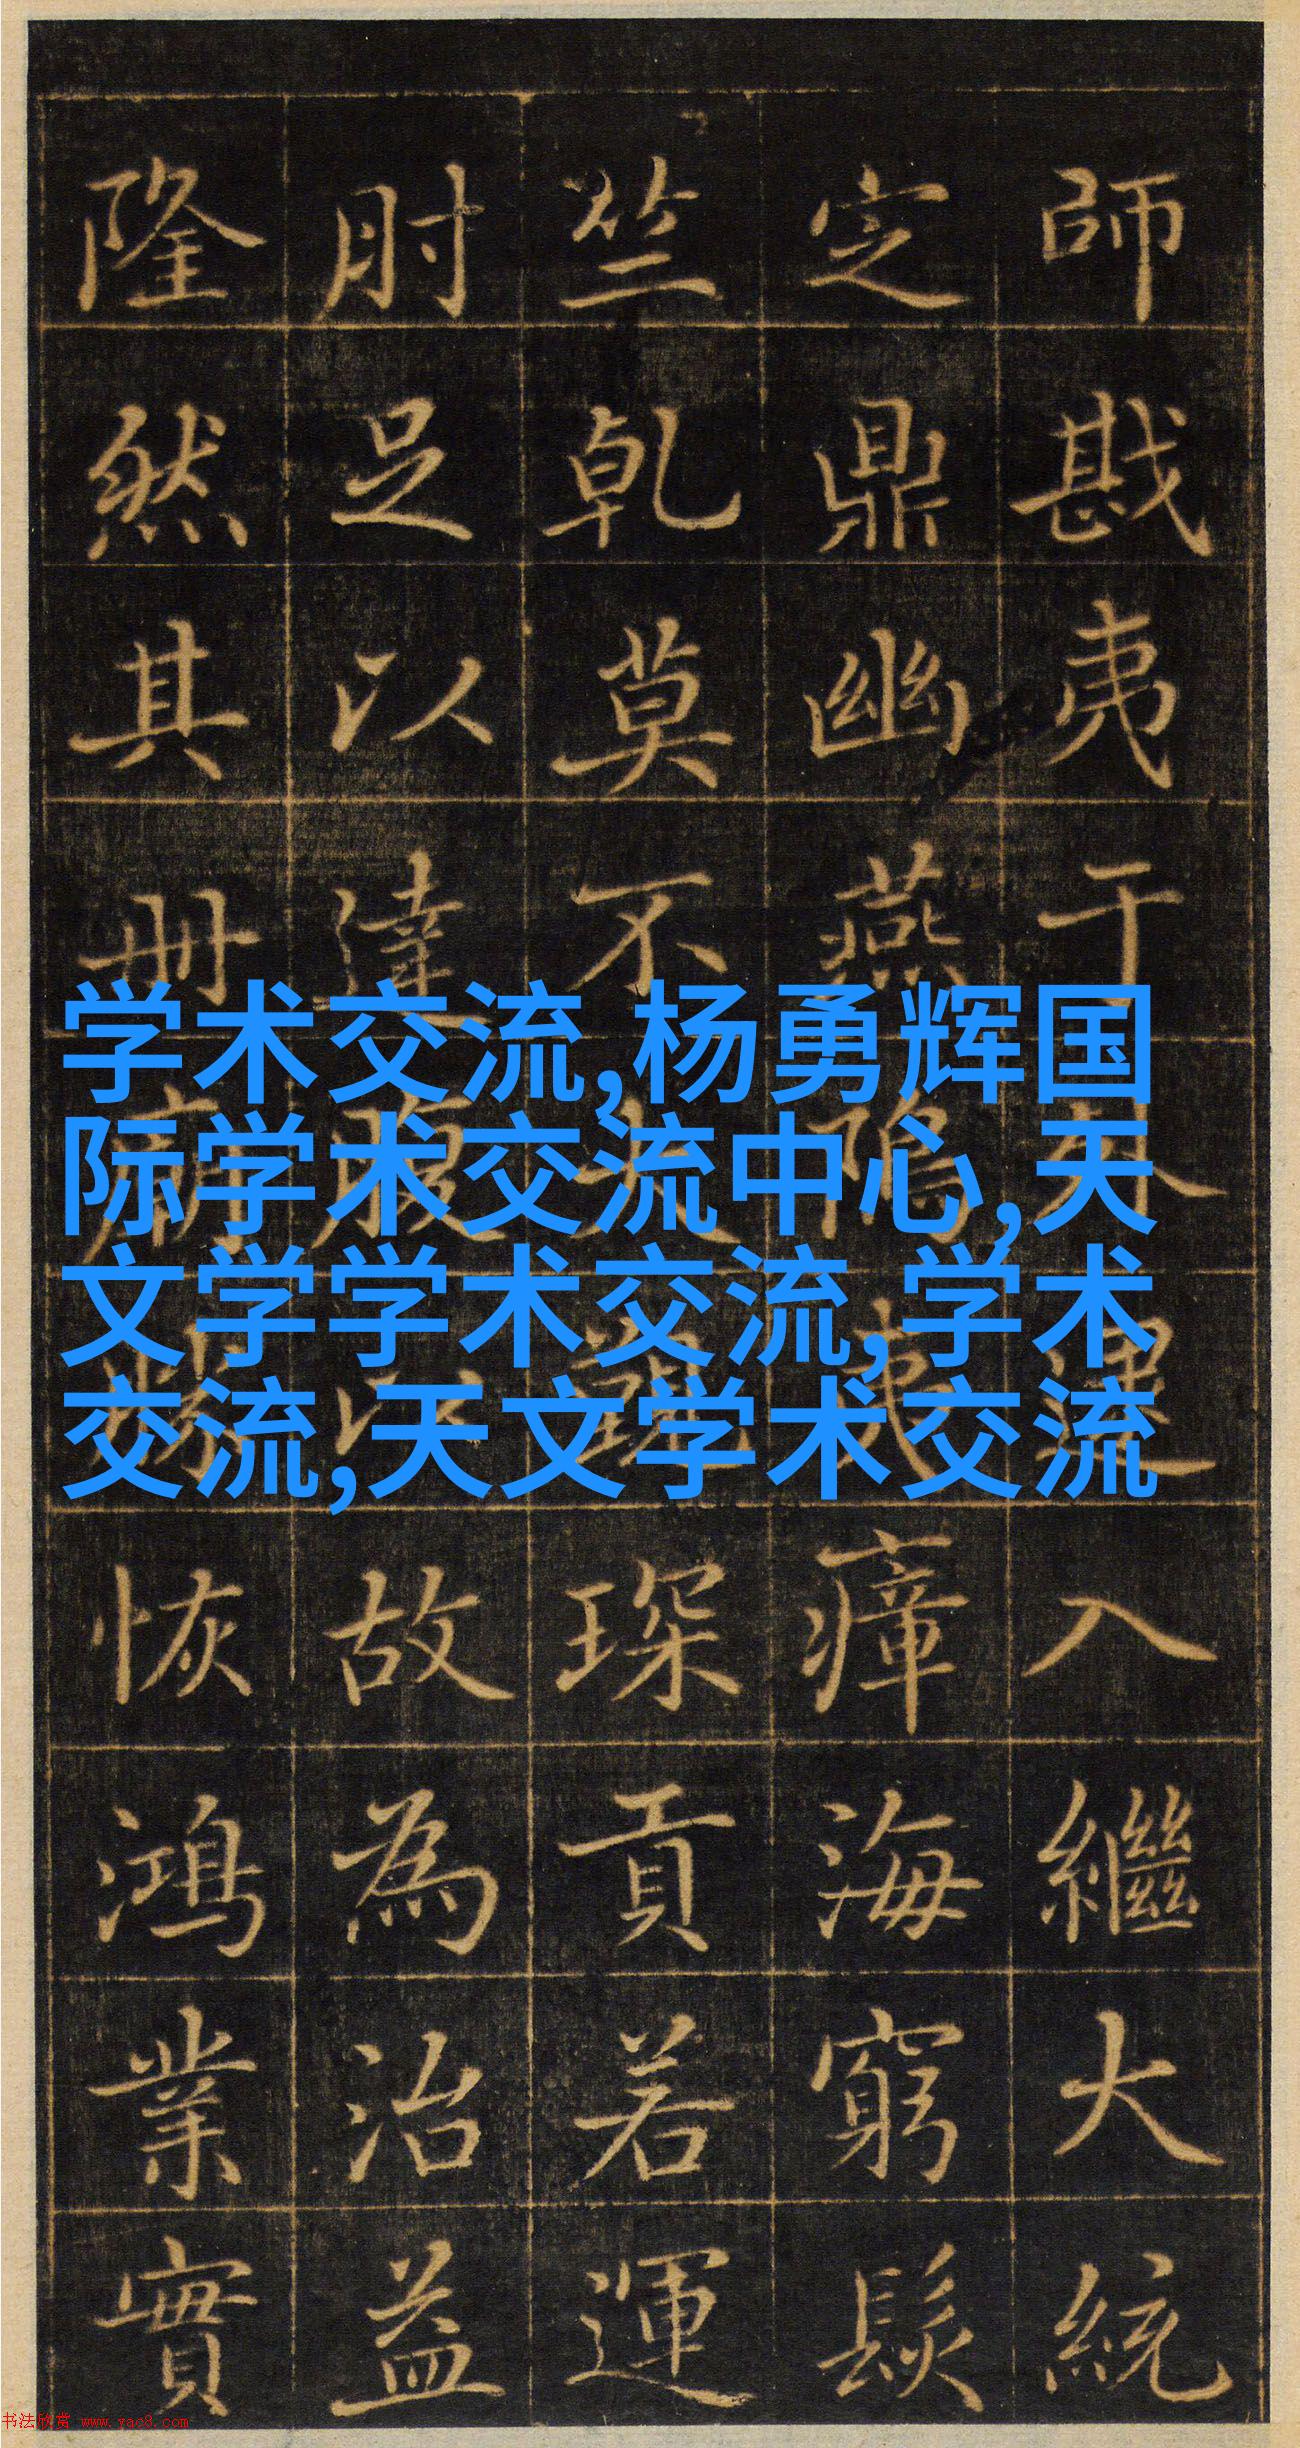 師戡夷于外建入繼大統
定鼎幽燕隝夷瘴海窮髮
竺乾莫不琛貢若運
肘足以達腹以故為治益
隆然其冊恢鴻業實
学术交流,杨勇辉国
际学术交流中心,天
文学学术交流,学术
交流,天文学术交流
书法欣赏 www.yac8.com